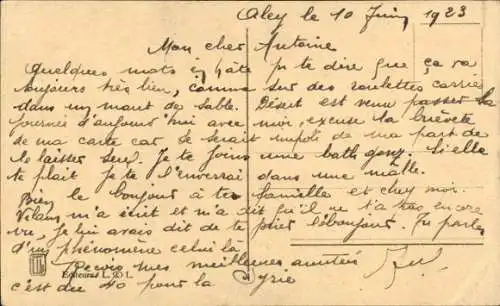 Aley le 10 Juin 1923
Mon cher Antoine
Quelques mots en hâte p te dire que ça va
toujours très bien, comme sur des roulettes
dans un mont de sable. Désert est venu passer la
journée d'aujourd'hui avec moi, excuse la brièveté
de ma carte car ce serait impoli de ma part de
le laisser seul. Je te joins une
te plait je te l'enverrai dans une malle.
Bien le bonjour à ta famille et chez moi.
m'a écrit et m'a dit qu'il ne t'a pas encore
vu, je lui avais dit de te le bonjour. Tu parles
d'un phénomène celui là
Reçois mes meilleures amitiés
c'est du 40 pour la Syrie
Editeurs L. & L.